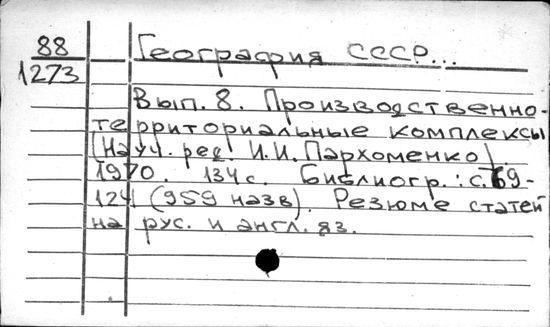 88
1273
География СССР...
Вып. 8. Производственно-
территориальные комплексы
(Науч. ред. И.И. Пархоменко).
1970. 134 с. Библиогр.: с. 69-
124 (959 назв). Резюме статей
на рус. и англ. яз.